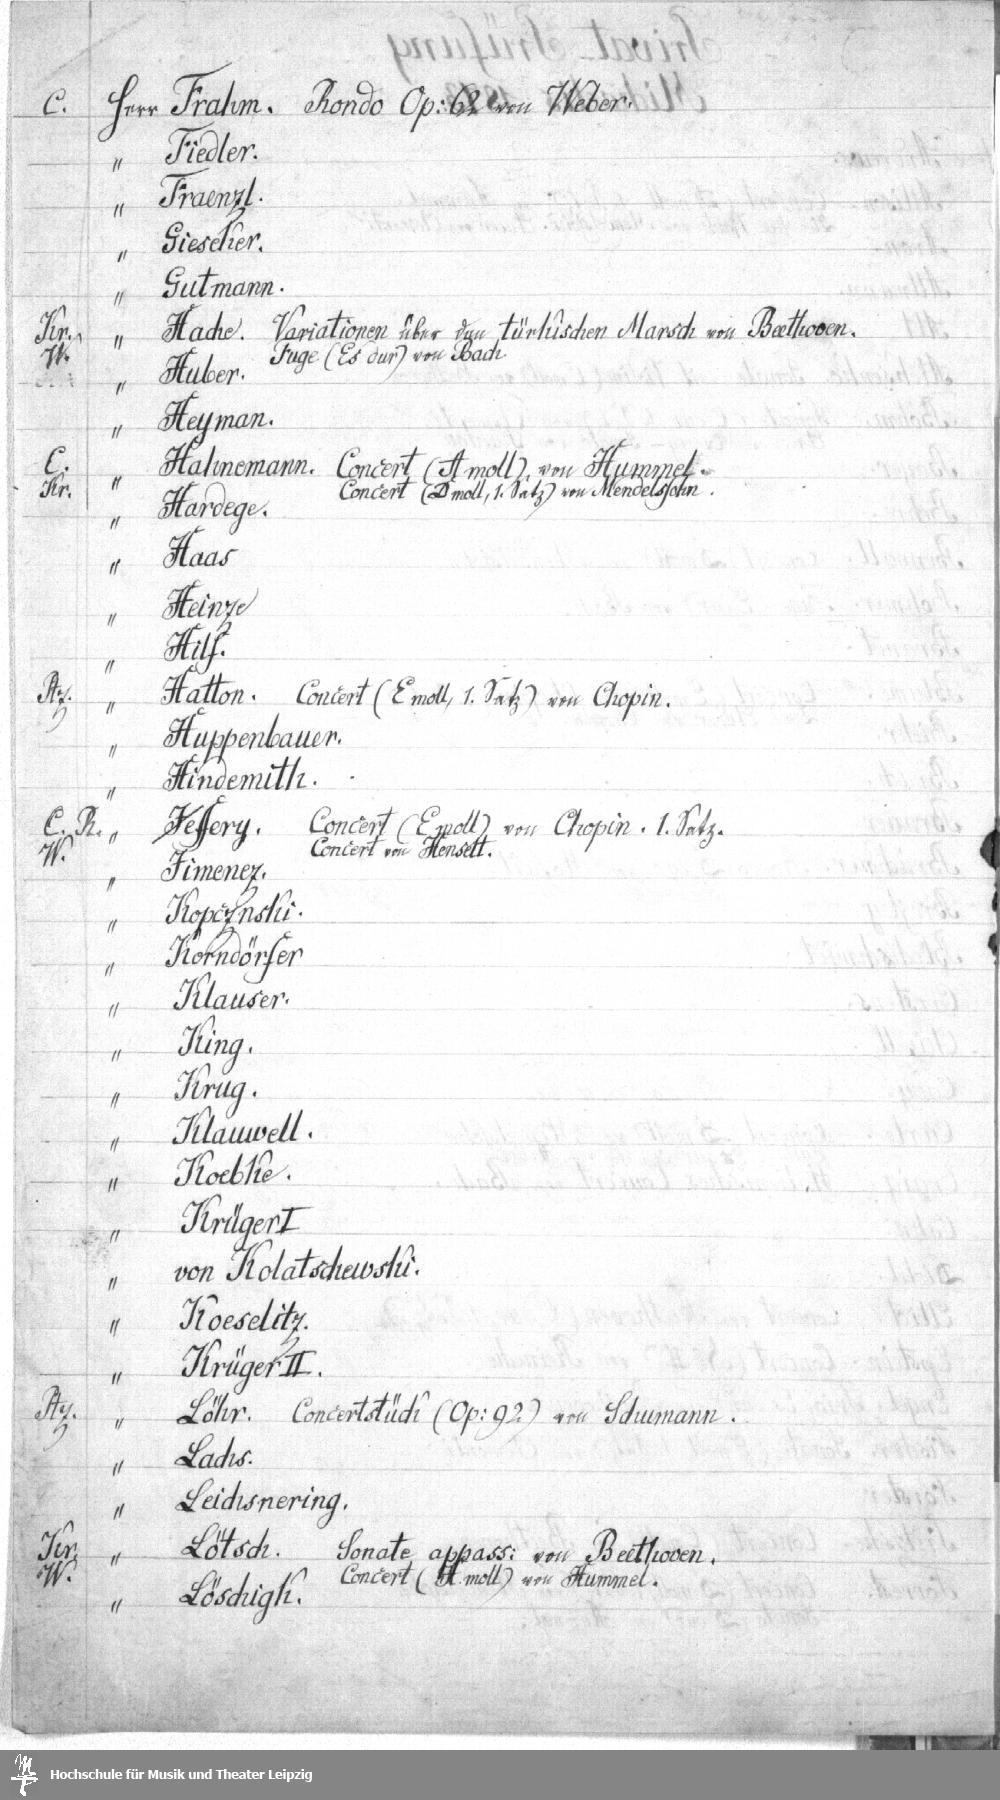 C. Herr Frahm. Rondo Op: 62 von Weber.
" Fiedler.
" Fraenzl.
" Giesecker.
" Gutmann.
Kr. " Hache. Variationen über den türkischen Marsch von Beethoven.
W. Fuge (Es dur) von Bach
" Huber.
" Heyman.
C. " Hahnemann. Concert (A moll) von Hummel.
Kr. Concert (D moll, 1. Satz) von Mendelssohn.
" Hardege.
" Haas
" Heinze
" Hilf.
" Hatton. Concert (E moll, 1. Satz) von Chopin.
" Huppenbauer.
" Hindemith.
C. R. " Jeffery. Concert (E moll) von Chopin. 1. Satz.
W. Concert von Henselt.
" Jimenez.
" Kopczynski.
" Korndörfer
" Klauser.
" King.
" Krug.
" Klauwell.
" Koebke.
" Krüger I
" von Kolatschewski.
" Koeselitz.
" Krüger II.
" Löhr. Concertstück (Op: 92.) von Schumann.
" Lachs.
" Leichsnering.
Kr. " Lötsch. Sonate appass: von Beethoven.
W. Concert (A moll) von Hummel.
" Löschigk.
Hochschule für Musik und Theater Leipzig